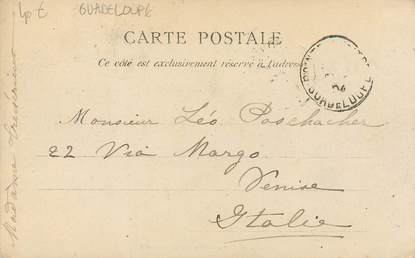 GUADELOUPE
CARTE POSTALE
Ce côté est exclusivement réservé à l'adresse
GUADELOUPE
Monsieur Léo Poschacher
22 Via Margo
Venise
Italie
Madame